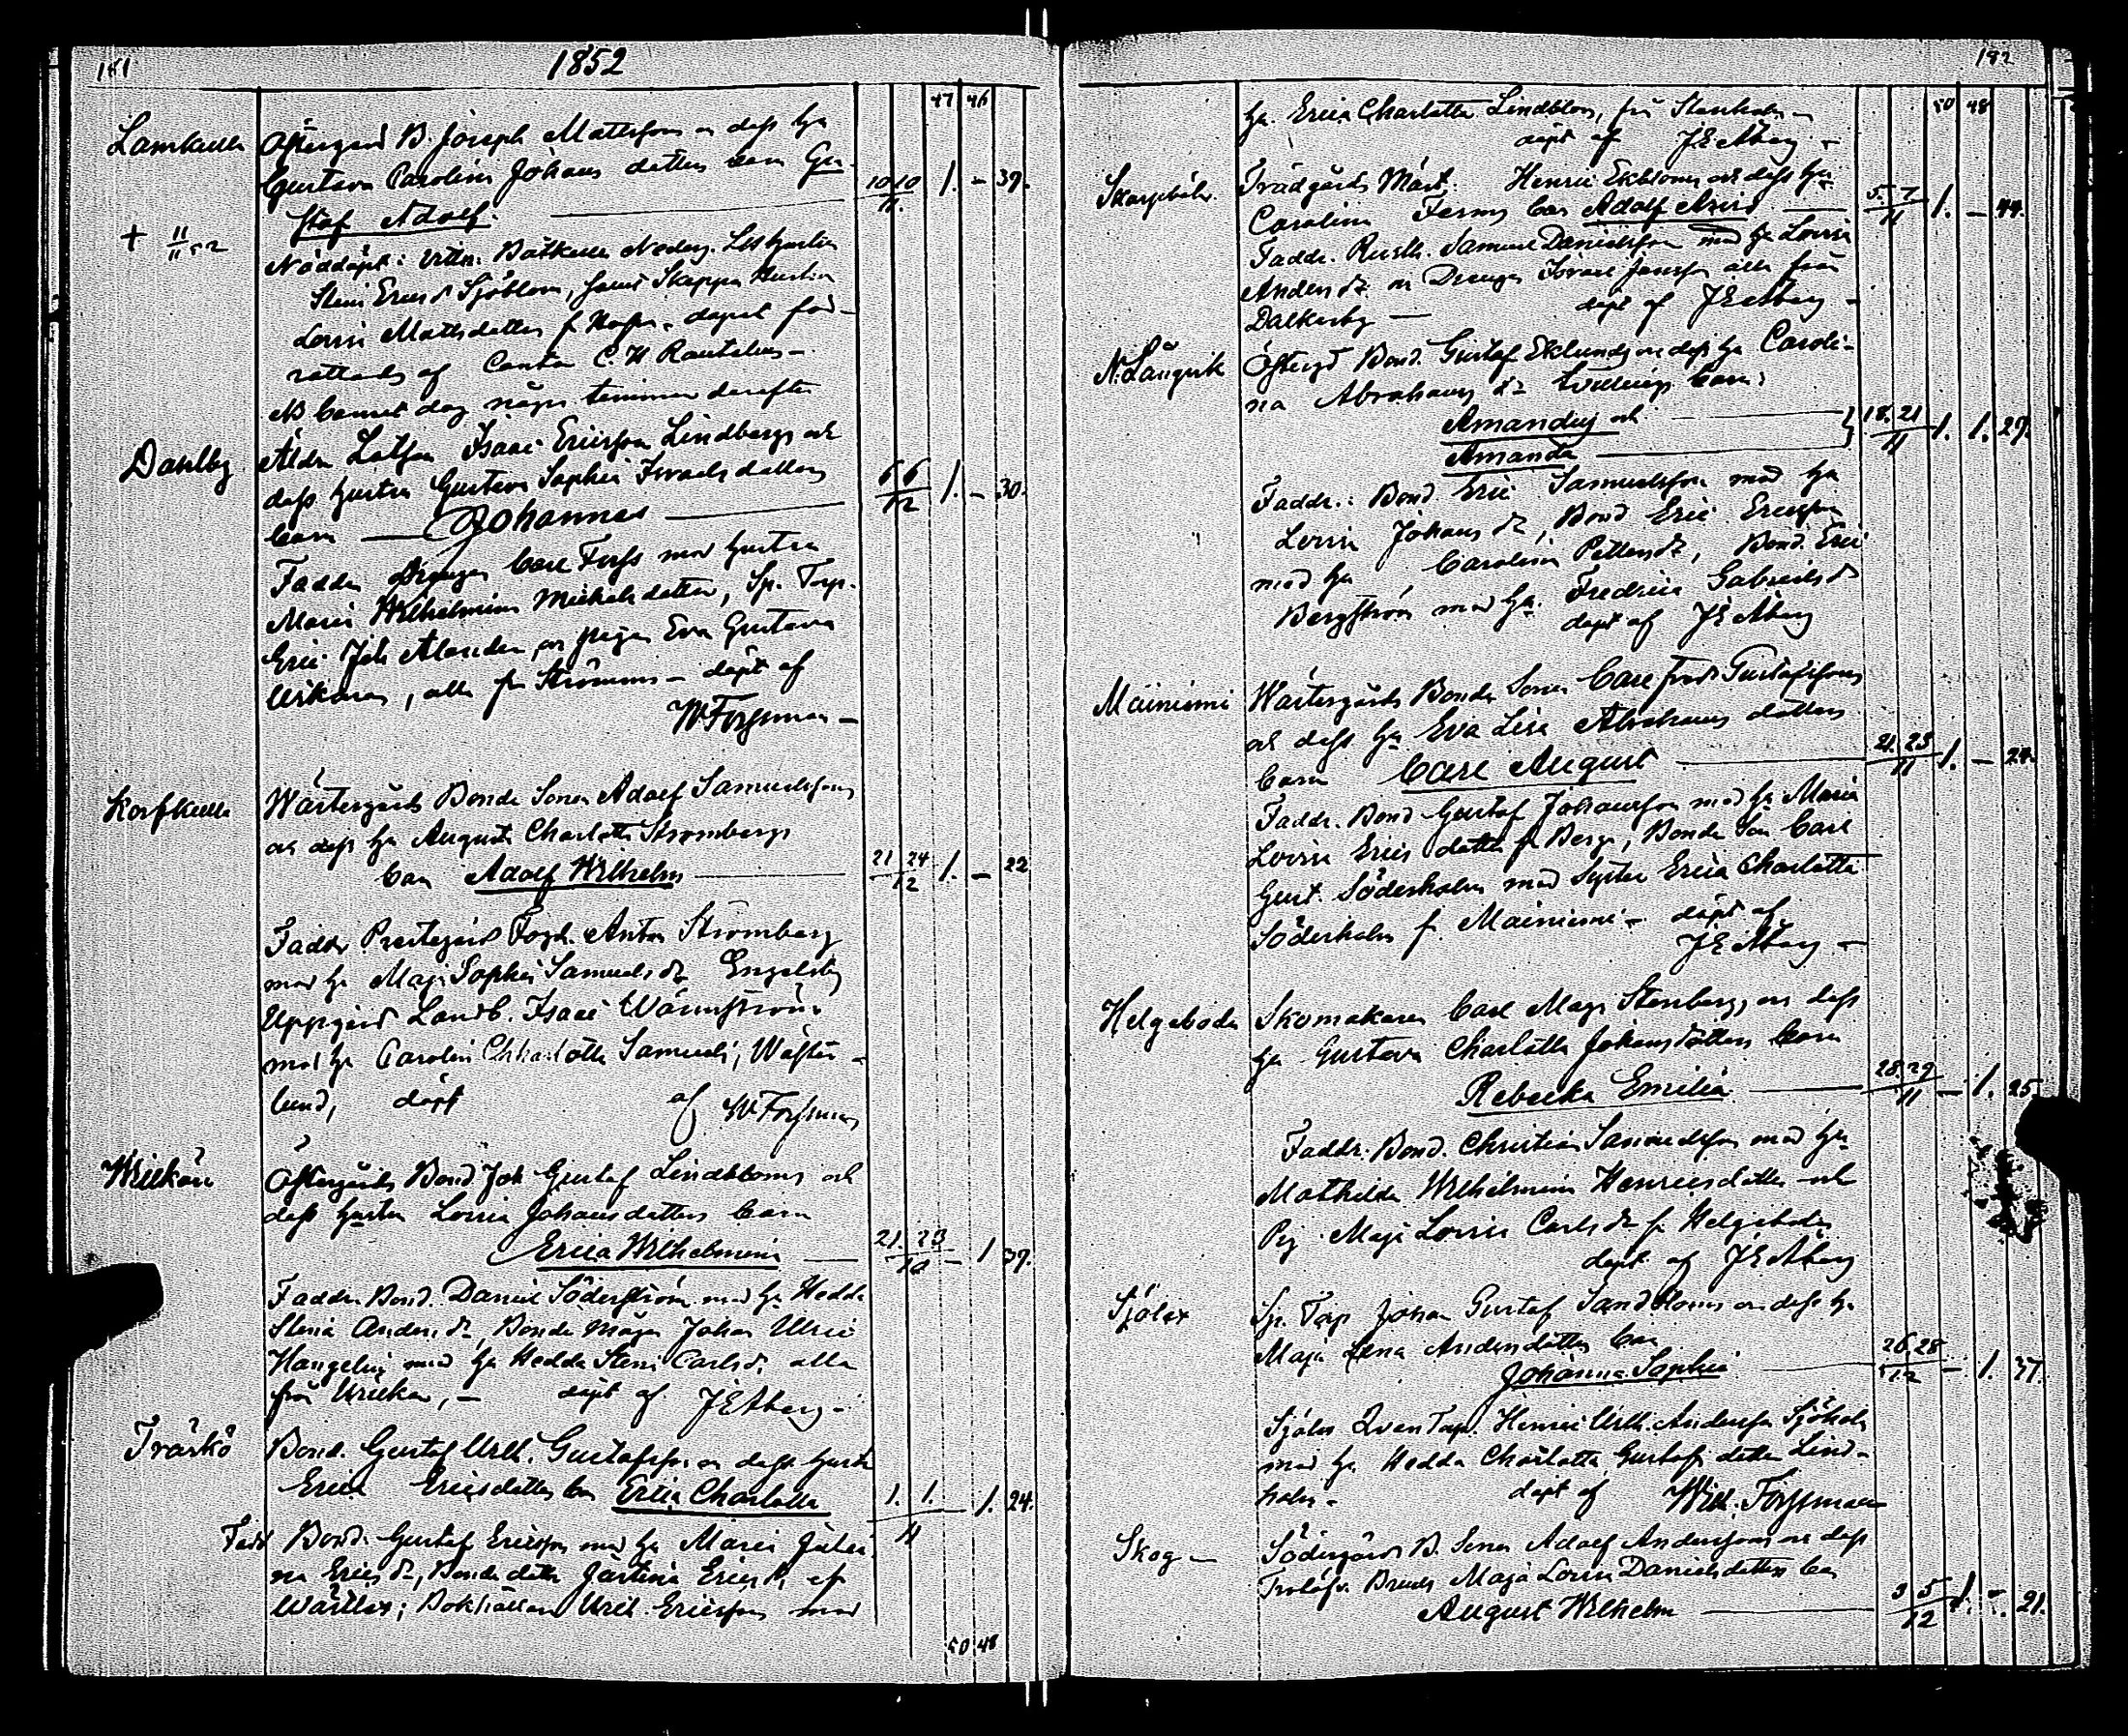 181
1852
47 46
Lamkulla Östergård B. Joseph Mattsson o dess h:u
Gustava Carolina Johans dotters barn Gu-
staf Adolf. 10 10 / 11. 1. - 39.
+ 11/11 52
Nöddöpt: Vittn. Båtkulla Nederg. Lots hustru
Stina Ericsd. Sjöblom, samt Skeppar Hustru
Lovisa Mattsdotter fr dopet för-
rättades af Cantor C. H. Rautelius -
NB barnet dog några timmar derefter
Dahlby Åldr. Lotsen Isaac Ericsson Lindbergs och
dess hustru Gustava Sophia Israelsdotters
barn Johannes 6 6 / 12 1. - 30.
Faddr. Drengen Carl Forss med hustru
Maria Wilhelmina Michelsdotter, Sp. Torp.
Eric Joh. Alander, o pigan Eva Gustava
alla fr Strömma - döpt af
W Forssman -
Korskulla Wästergårds Bonde Sonen Adolf Samuelssons
och dess h:u Augusta Charlotta Strömbergs
barn Adolf Wilhelm 21 24 / 12 1. - 22
Faddr Prestegårds Fogd. Anton Strömberg
med h:u Maja Sophia Samuels dr Engelsby
Uppgård Landb. Isaac Wärnström
med h:u Carolin Charlotta Samuels, Wäster-
lund, döpt af W Forssman
Östergårds Bond. Joh Gustaf Lindbloms och
dess hustru Lovisa Johansdotters barn
Erica Wilhelmina 21. 23 / 10 - 1 39.
Faddr. Bond. Daniel Söderström med h:u Hedda
Stina Anders dr, Bonde Mågen Johan Ulric
Hangelin med h:u Hedda Stina Carlsdr, alla
från döpt af J E Åberg -
Träskö Bond. Gustaf Wilh. Gustafsson o dess hustru
Erica Ericsdotters barn Erica Charlotta 1. 1. / 11 - 1. 24.
Fadd Bond. Gustaf Ericsson med h:u Maria Julia-
na Erics dr, Bonde dottr Justina Ericsdr, af
Bokhållaren Wilh. Ericsson med
50 48
182
50 48
h:u Erica Charlotta Lindblom, från Stenholm -
döpt af J E Åberg -
Skarpböle Trädgårds Mäst. Henric Ekbloms och dess h:u
Carolina Ferms barn Adolf Arvid 5. 7 / 11 1. - 44.
Faddr. Rusth. Samuel Danielsson med h:u Lovisa
Anders dr o Drengen Isaac Jansson alla från
Dalkarby - döpt af J E Åberg -
N. Långvik Östergd Bond. Gustaf Eklunds o dess h:u Caroli-
na Abrahams drs tvillings barn:
Amandus och
Amanda 18. 21 / 11 1. 1. 29.
Faddr.: Bond. Eric Samuelsson med h:u
Lovisa Johans dr, Bond Eric Ericsson
med h:u Carolina Pettersdr, Bond. Eric
Bergström med h:u Fredrica Gabrielsdr
döpt af J E Åberg
Mainiemi Wästergårds Bonde Sonen Carl Fredr Gustafssons
och dess h:u Eva Lisa Abrahams dotters
barn Carl August 21. 23 / 11 1. - 24.
Faddr. Bond Gustaf Johansson med h:u Maria
Lovisa Erics dotter fr Berg, Bonde Son Carl
Gust. Söderholm med Syster Erica Charlotta
Söderholm fr. Mainiemi - döpt af
J E Åberg -
Helgeboda Skomakaren Carl Magn Stenbergs, o dess
h:u Gustava Charlotta Johans dotters barn
Rebecka Emilia 28. 29 / 11 - 1. 25.
Faddr. Bond. Christian Samuelsson med h:u
Mathilda Wilhelmina Henricsdotter och
Pig. Maja Lovisa Carls dr fr Helgeboda
döpt af J E Åberg
Sjölax Sp. Torp Johan Gustaf Sandbloms o dess h:u
Maja Lena Andersdotters barn
Johanna Sophia 26. 28 / 12 - 1. 37.
Sjölax Torp. Henric Wilh. Andersson Sjöholm
med h:u Hedda Charlotta Gustafs dotter Lind-
holm - döpt af Wilh. Forssman
Skog - Södergårds B. Sonen Adolf Anderssons o dess
Trolofv. Bruds Maja Lovisa Danielsdotters barn
August Wilhelm 3 5 / 12 1. - 21.